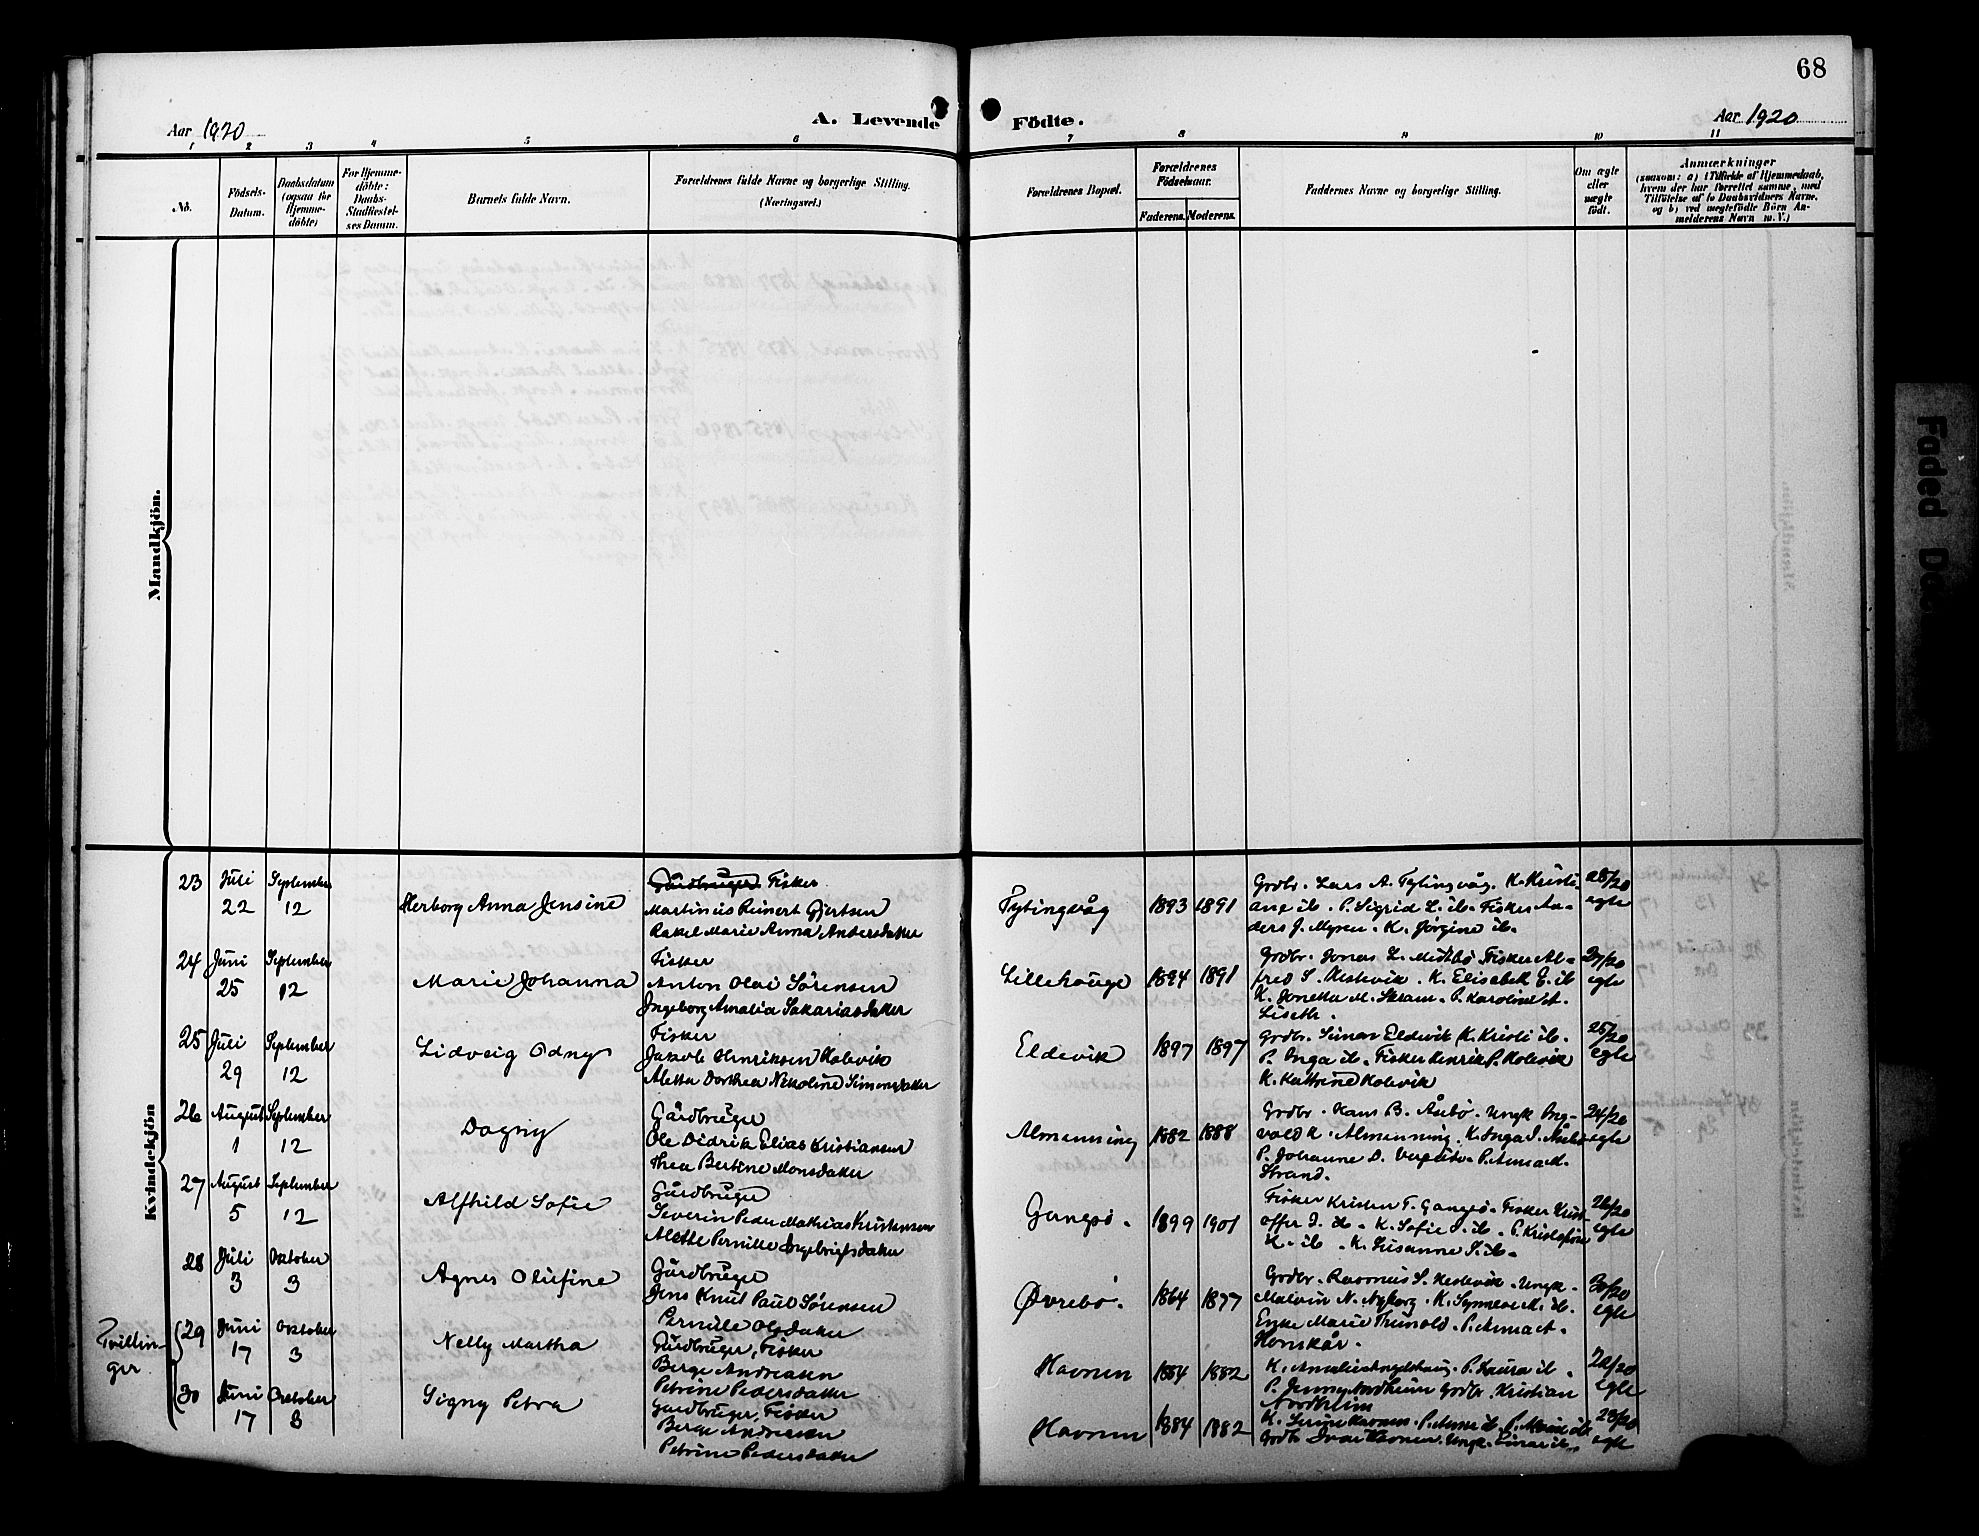 68
Aar 1920
A. Levende Födte.
Aar 1920
1 2 3 4 5 6 7 8 9 10 11
No.
Födsels-
Datum.
Daabsdatum
(ogsaa for
Hjemme-
döbte)
For Hjemme-
döbte:
Daabs-
Stadfæstel-
ses Datum.
Barnets fulde Navn.
Forældrenes fulde Navne og borgerlige Stilling.
(Næringsvei.)
Forældrenes Bopæl.
Forældrenes
Födselsaar.
Faderens. Moderens.
Faddernes Navne og borgerlige Stilling.
Om ægte
eller
uægte
födt.
Anmærkninger
(saasom: a) i Tilfælde af Hjemmedaab,
hvem der har forrettet samme, med
Tilföielse af to Daabsvidners Navne.
og b) ved uægtefödte Börn An-
melderens Navn m. V.)
Mandkjön.
Kvindekjön
23 Juli 22 September 12
Herborg Anna Jensine
Gårdbruger Fisker
Martinus Reinert Gjertsen
Rakel Marie Anna Andersdatter
Tytingvåg 1893 1891
Grdbr. Lars A. Tytingvåg. K. Kristi-
ane ib. P. Sigrid L. ib. Fisker An-
ders J. Myren. K. Jørgine ib.
28/20
egte
24 Juni 25 September 12
Marie Johanna
Fisker
Anton Olai Sørensen
Ingeborg Amalia Sakariasdatter
Lillehauge 1894 1891
Grdbr. Jonas L. Midtbø Fisker Al-
fred S. Hestevik. K. Elisabet E. ib
K. Jonetta M. Skram. P. Karoline A.
Liseth.
27/20
egte
25 Juli 29 September 12
Lidveig Odny
Fisker
Jakob Henriksen Kolevik
Aletta Dorthea Nikoline Simonsdatter
Eldevik 1897 1897
Grdbr. Simon Eldevik K. Kristi ib.
P. Inga ib. Fisker Henrik P. Kolevik
K. Kattrine Kolevik
25/20
egte
26 August 1 September 12
Dagny
Gårdbruger
Ole Didrik Elias Kristiansen
Thea Bertine Monsdatter
Almenning 1882 1888
Grdbr. Hans B. Åsebø. Ungk. Ing-
vald K. Almenning. K. Inga I. Åsebø
P. Johanne D. P. Anna M.
Strand.
24/20
egte
27 August 5 September 12
Alfhild Sofie
Gårdbruger
Severin Peder Mathias Kristensen
Alette Pernille Ingebrigtsdatter
Gangsø. 1899 1901
Fisker Kristen T. Gangsø. Fisker Krist-
offer I. ib. K. Sofie I. ib. P. Kristofine
K. ib. K. Susanne S. ib.
26/20
egte
28 Juli 3 Oktober 3
Agnes Olufine
Gårdbruger
Jens Knut Paul Sørensen
Pernille Olsdatter
Øvrebø. 1864 1877
Grdbr. Rasmus S. Hestevik. Ungk.
Malvin N. Nyborg. K. Synneve M. ib.
Enke Marie Thunold. P. Anna A.
Hornskår.
30/20
egte
Tvillin-
ger
29 Juni 17 Oktober 3
Nelly Martha
Gårdbruger, Fisker
Berge Andreasen
Petrine Pedersdatter
Havnen 1884 1882
K. Amalie P. Laura ib.
P. Jenny Nordheim Grdbr. Kristian
Nordheim
22/20
egte
30 Juni 17 October 3
Signy Petra
Gårdbruger, Fisker
Berge Andreasen
Petrine Pedersdatter
Havnen 1884 1882
K. Serine Havnen. P. Anne ib. P. ib
Grdbr Ivar Havnen. Ungk. Einar ib.
23/20
egte
Faded Do